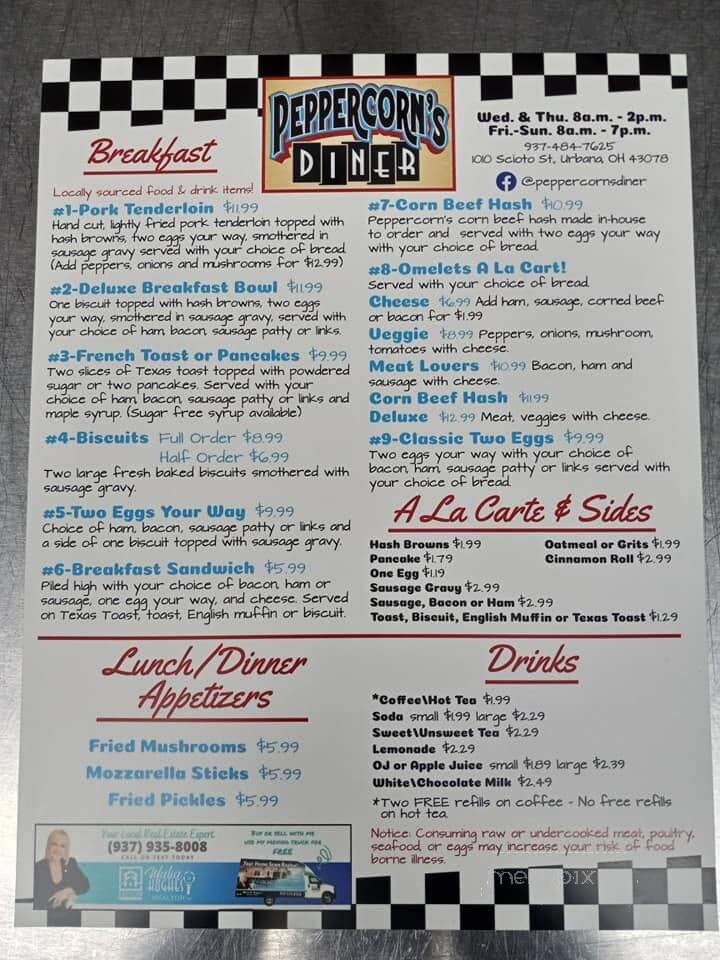 PEPPERCORN'S
DINER
Wed. & Thu. 8a.m. - 2p.m.
Fri.-Sun. 8a.m. - 7p.m.
937-484-7625
1010 Scioto St, Urbana, OH 43078
@peppercornsdiner
Breakfast
Locally sourced food & drink items!
#1-Pork Tenderloin $11.99
Hand cut, lightly fried pork tenderloin topped with
hash browns, two eggs your way, smothered in
sausage gravy served with your choice of bread.
(Add peppers, onions and mushrooms for $12.99)
#2-Deluxe Breakfast Bowl $11.99
One biscuit topped with hash browns, two eggs
your way, smothered in sausage gravy, served with
your choice of ham, bacon, sausage patty or links.
#3-French Toast or Pancakes $9.99
Two slices of Texas toast topped with powdered
sugar or two pancakes. Served with your
choice of ham, bacon, sausage patty or links and
maple syrup. (Sugar free syrup available)
#4-Biscuits Full Order $8.99
Half Order $6.99
Two large fresh baked biscuits smothered with
sausage gravy.
#5-Two Eggs Your Way $9.99
Choice of ham, bacon, sausage patty or links and
a side of one biscuit topped with sausage gravy.
#6-Breakfast Sandwich $5.99
Piled high with your choice of bacon, ham or
sausage, one egg your way, and cheese. Served
on Texas Toast, toast, English muffin or biscuit.
#7-Corn Beef Hash $10.99
Peppercorn's corn beef hash made in-house
to order and served with two eggs your way
with your choice of bread.
#8-Omelets A La Cart!
Served with your choice of bread.
Cheese $6.99 Add ham, sausage, corned beef
or bacon for $1.99
Veggie $8.99 Peppers, onions, mushroom,
tomatoes with cheese.
Meat Lovers $10.99 Bacon, ham and
sausage with cheese.
Corn Beef Hash $11.99
Deluxe $12.99 Meat, veggies with cheese.
#9-Classic Two Eggs $9.99
Two eggs your way with your choice of
bacon, ham, sausage patty or links served with
your choice of bread.
A La Carte & Sides
Hash Browns $1.99 Oatmeal or Grits $1.99
Pancake $1.79 Cinnamon Roll $2.99
One Egg $1.19
Sausage Gravy $2.99
Sausage, Bacon or Ham $2.99
Toast, Biscuit, English Muffin or Texas Toast $1.29
Lunch/Dinner
Appetizers
Fried Mushrooms $5.99
Mozzarella Sticks $5.99
Fried Pickles $5.99
Drinks
*Coffee\Hot Tea $1.99
Soda small $1.99 large $2.29
Sweet\Unsweet Tea $2.29
Lemonade $2.29
OJ or Apple Juice small $1.89 large $2.39
White\Chocolate Milk $2.49
*Two FREE refills on coffee - No free refills
on hot tea.
Notice: Consuming raw or undercooked meat, poultry,
seafood, or eggs may increase your risk of food
borne illness.
Your Local Real Estate Expert
(937) 935-8008
CALL OR TEXT TODAY
HUGHES
REALTOR
BUY OR SELL WITH ME
USE MY MOVING TRUCK FOR
FREE
menupix